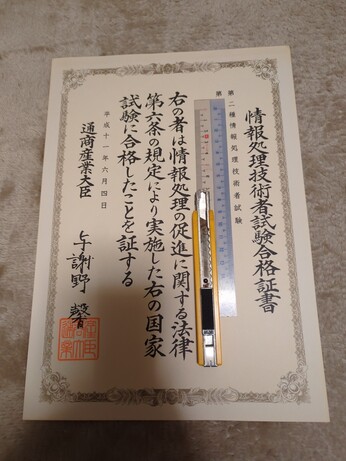 情報処理技術者試験合格証書
第二種情報処理技術者試験
第
右の者は情報処理の促進に関する法律
第六条の規定により実施した右の国家
試験に合格したことを証する
平成十一年六月四日
通商産業大臣
与謝野 馨